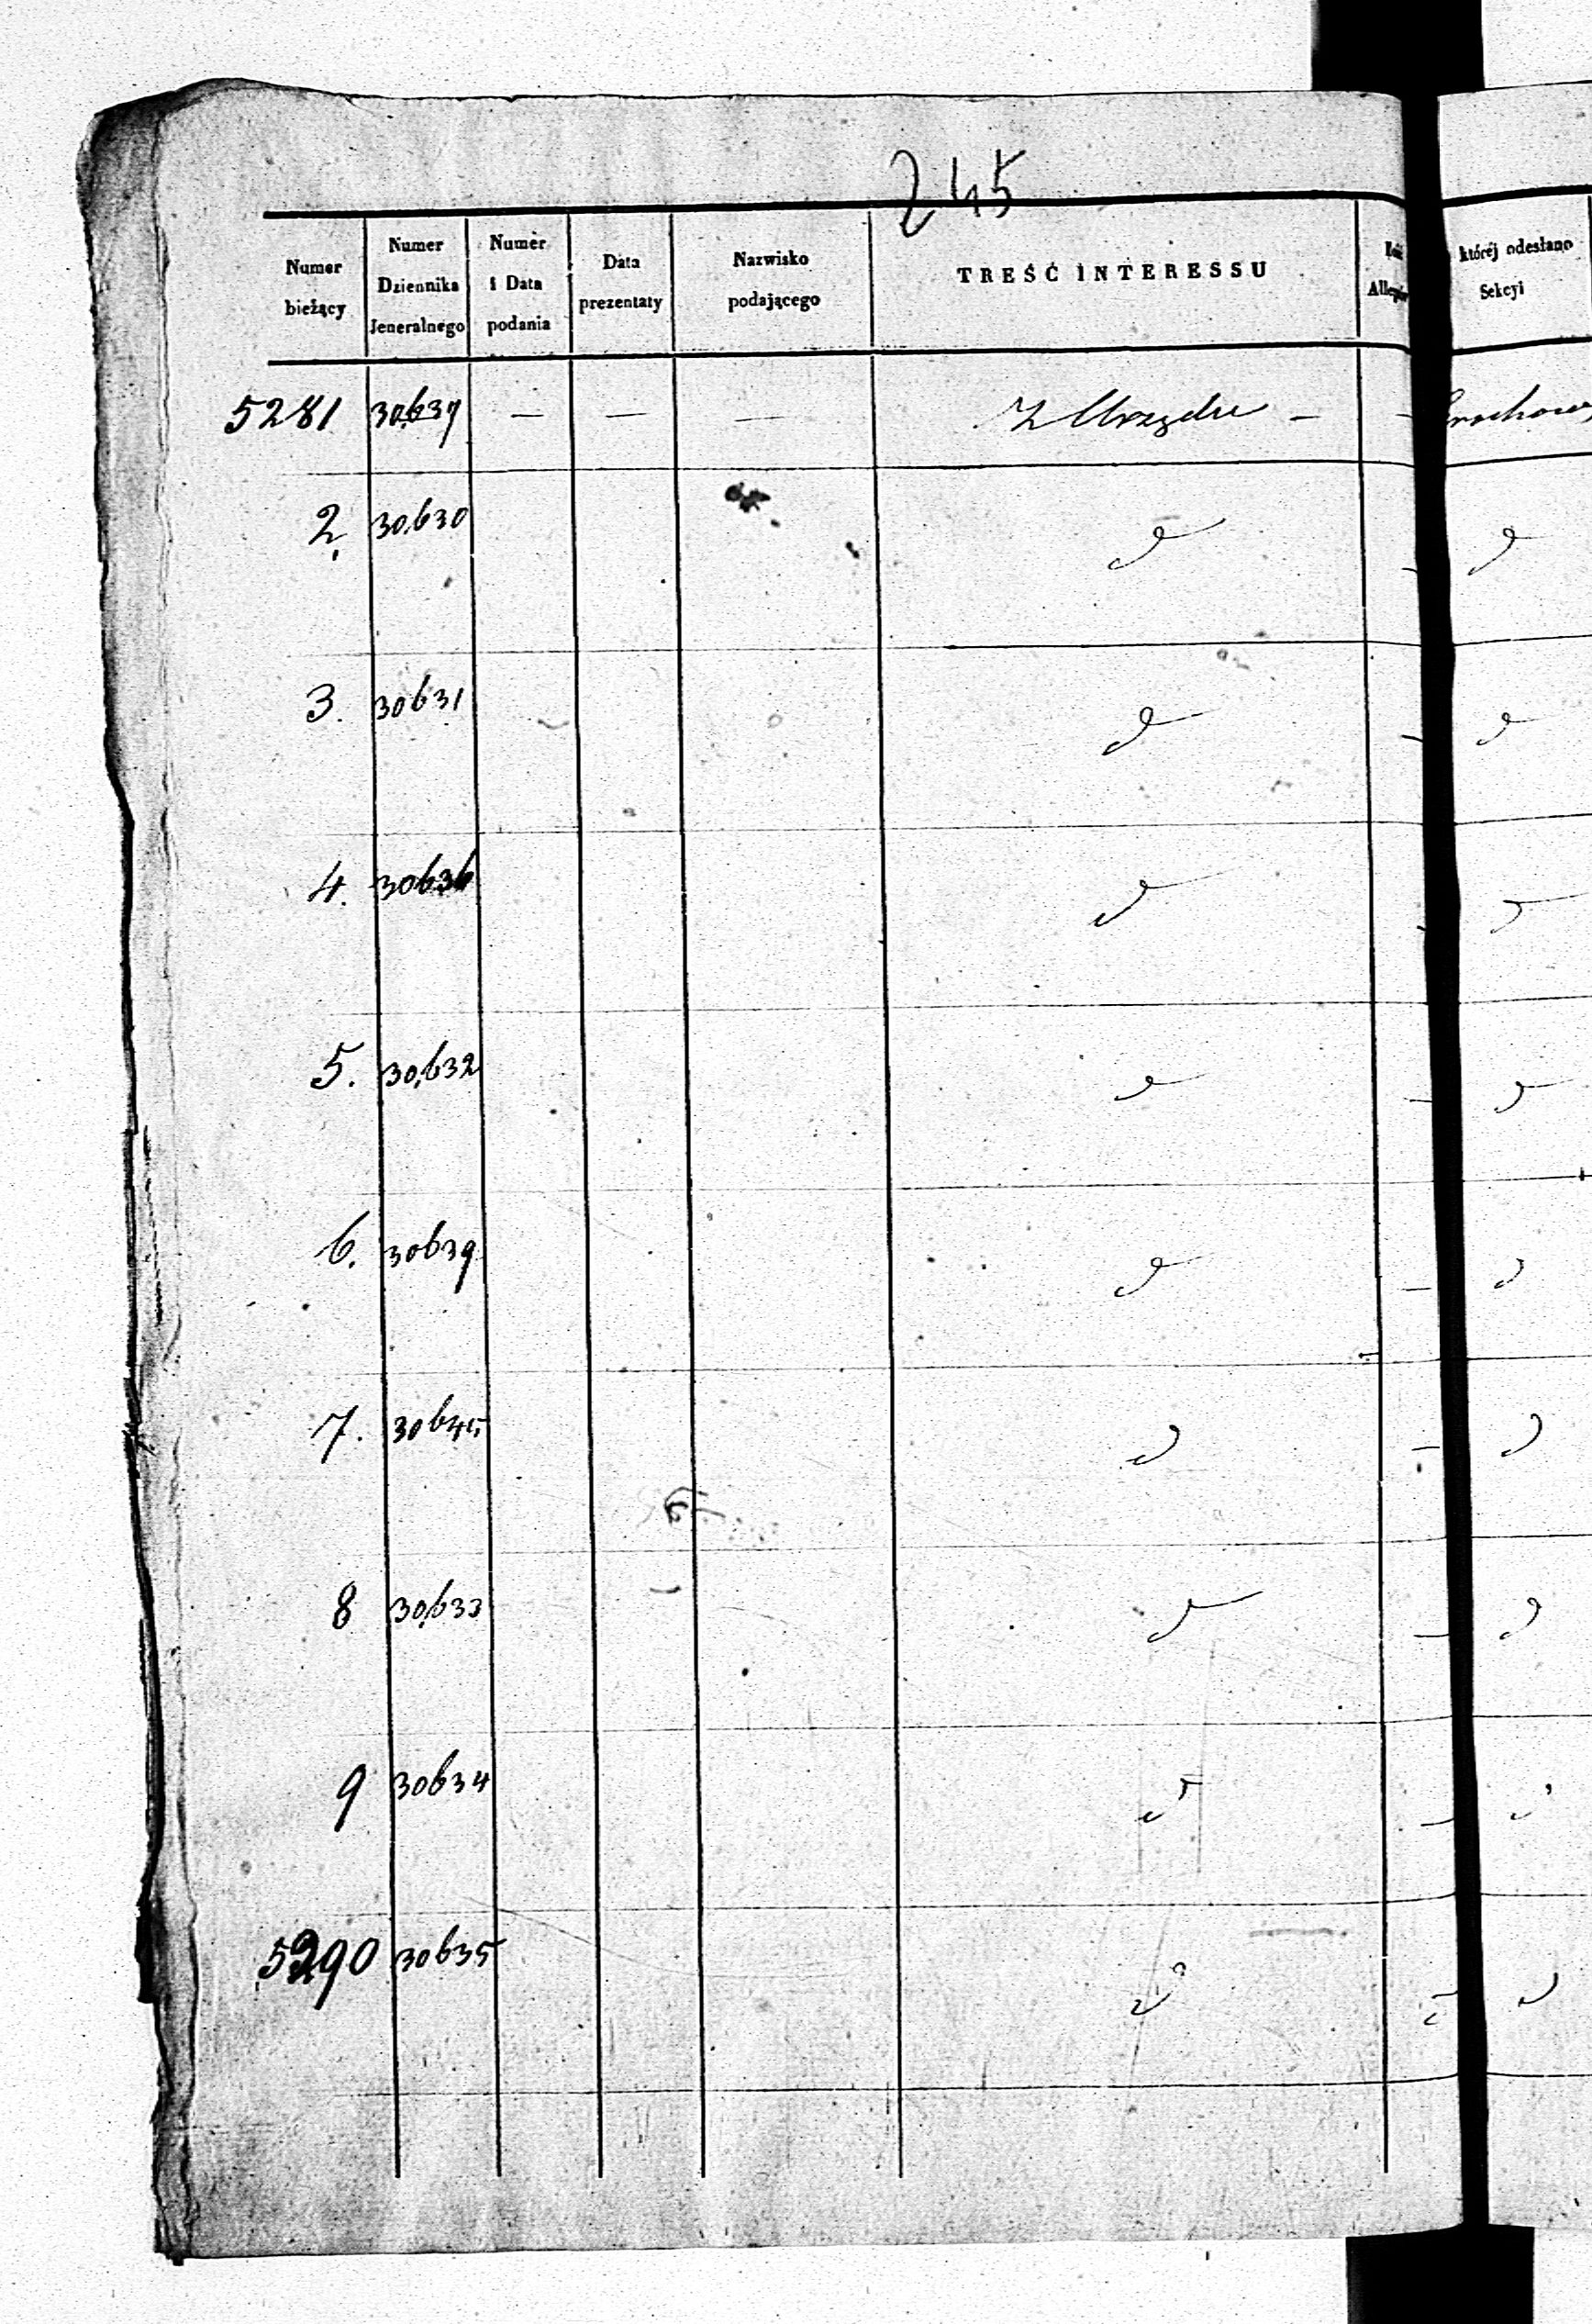 245
Numer bieżący | Numer Dziennika Jeneralnego | Numer i Data podania | Data prezentaty | Nazwisko podającego | TREŚĆ INTERESSU | której odesłano Sekcyi
5281 | 30,637 | — | — | — | Z Urzędu —
2. | 30,630
3. | 30631
4. | 30636
5. | 30,632
6. | 30639
7. | 30645
8 | 30,633
9 | 30634
5290 | 30635